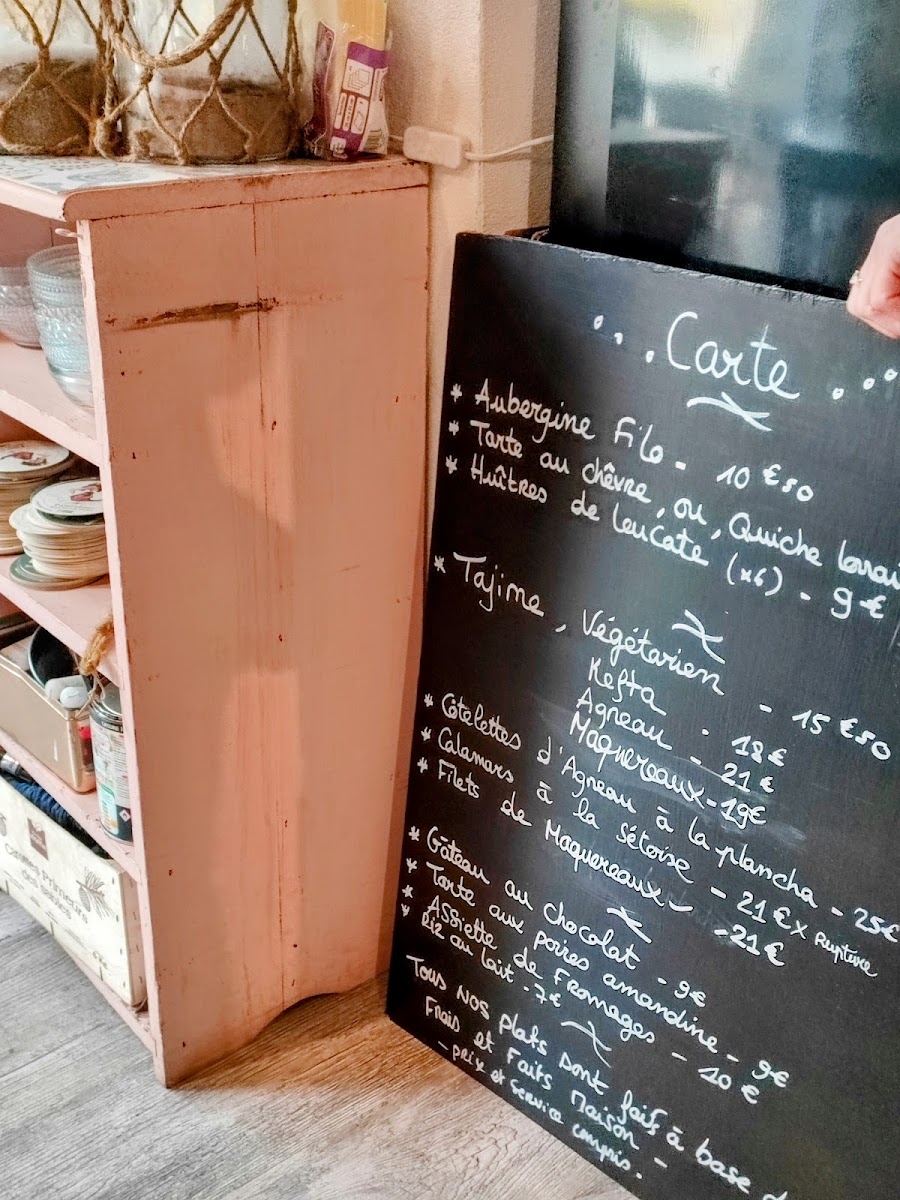 Carte
* Aubergine Filo - 10 €50
* Tarte au chèvre, ou, Quiche lorrai
* Huîtres de leucate (x6) - 9€
* Tajine, Végétarien - 15 €50
Kefta - 18€
Agneau - 21€
Maquereaux - 19€
* Côtelettes d'Agneau à la plancha - 25€
* Calamars à la sétoise - 21€ x Rupture
* Filets de Maquereaux - 21€
* Gâteau au chocolat - 9€
* Tarte aux poires amandine - 9€
* ASSiette de Fromages - 10 €
* Riz au lait - 7€
Tous Nos plats sont faits à base d
Frais et Faits Maison -
- prix et service compris.
Carottes Primeurs
des sables